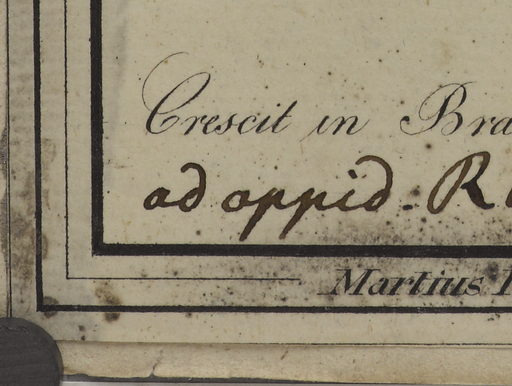 Crescit in Bra
ad oppid. R
Martius